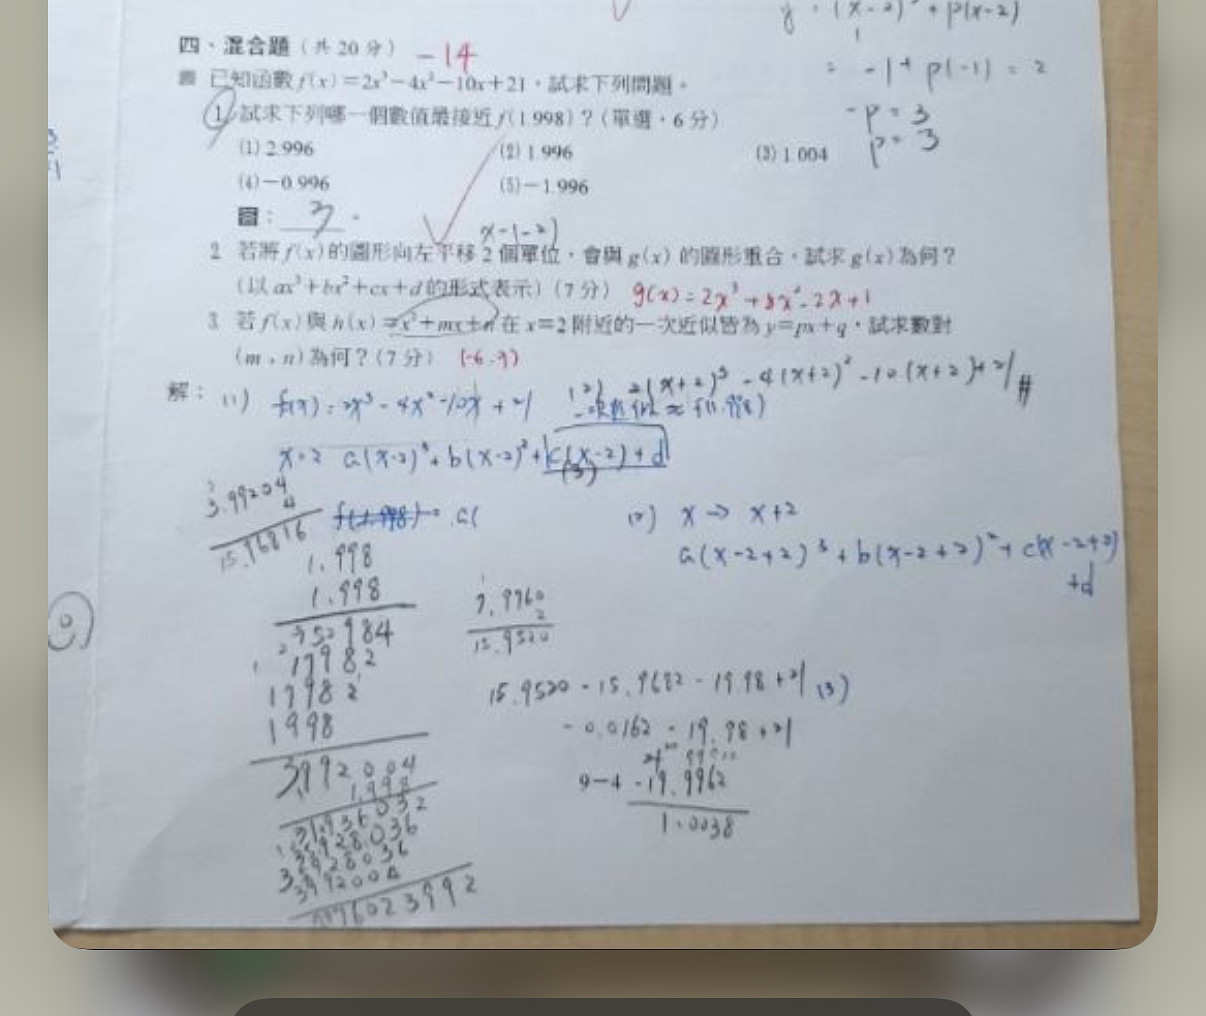 y = (x-2)³ + p(x-2)
= -1 + p(-1) = 2
-p = 3
p = 3
四、混合題（共 20 分） -14
已知函數 f(x)=2x³-4x²-10x+21，試求下列問題。
1 試求下列哪一個數值最接近 f(1.998)？（單選，6 分）
(1) 2.996 (2) 1.996 (3) 1.004
(4) -0.996 (5) -1.996
答： 3 。
x-(-2)
2 若將 f(x) 的圖形向左平移 2 個單位，會與 g(x) 的圖形重合，試求 g(x) 為何？
（以 ax³+bx²+cx+d 的形式表示）（7 分） g(x)=2x³+8x²-2x+1
3 若 f(x) 與 h(x)=x²+mx+n 在 x=2 附近的一次近似皆為 y=px+q，試求數對
（m，n）為何？（7 分） (-6.9)
解： (1) f(x)=2x³-4x²-10x+21
(2) 2(x+2)³-4(x+2)²-10(x+2)+21 #
一次近似 ≈ f(1.998)
x=2 a(x-2)³+b(x-2)²+c(x-2)+d
(3)
3.99204
4
15.96816
a(
(2) x → x+2
a(x-2+2)³+b(x-2+2)²+c(x-2+2)
+d
1.998
1.998
17982
17982
1998
3992004
1.998
7.9760
2
15.9520
15.9520-15.9682-19.98+21 (3)
-0.0162-19.98+21
9-4 -19.9962
1.0038